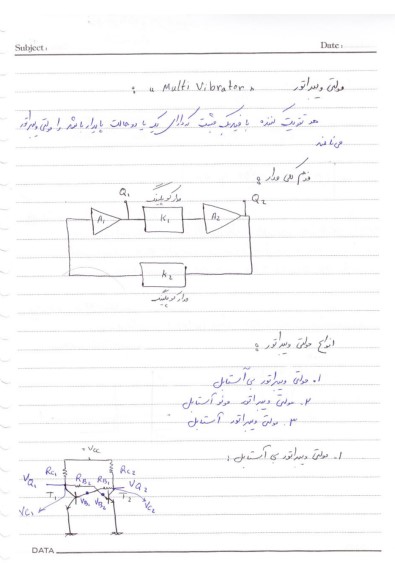 Subject : Date :
مولتی ویبراتور « Multi Vibrator » :
هر تقویت کننده با فیدبک مثبت که دارای یک یا دو حالت پایدار باشد را مولتی ویبراتور
می نامند
فرم کلی مدار :
Q1 مدار کوپلینگ Q2
A1 K1 A2
K2
مدار کوپلینگ
انواع مولتی ویبراتور :
۱. مولتی ویبراتور بی آستابل
۲. مولتی ویبراتور مونو آستابل
۳. مولتی ویبراتور آستابل
۱. مولتی ویبراتور بی آستابل :
+Vcc
RC1 RC2
VQ1 RB2 RB1 VQ2
T1 VB1 VB2 T2
VC1 VC2
DATA